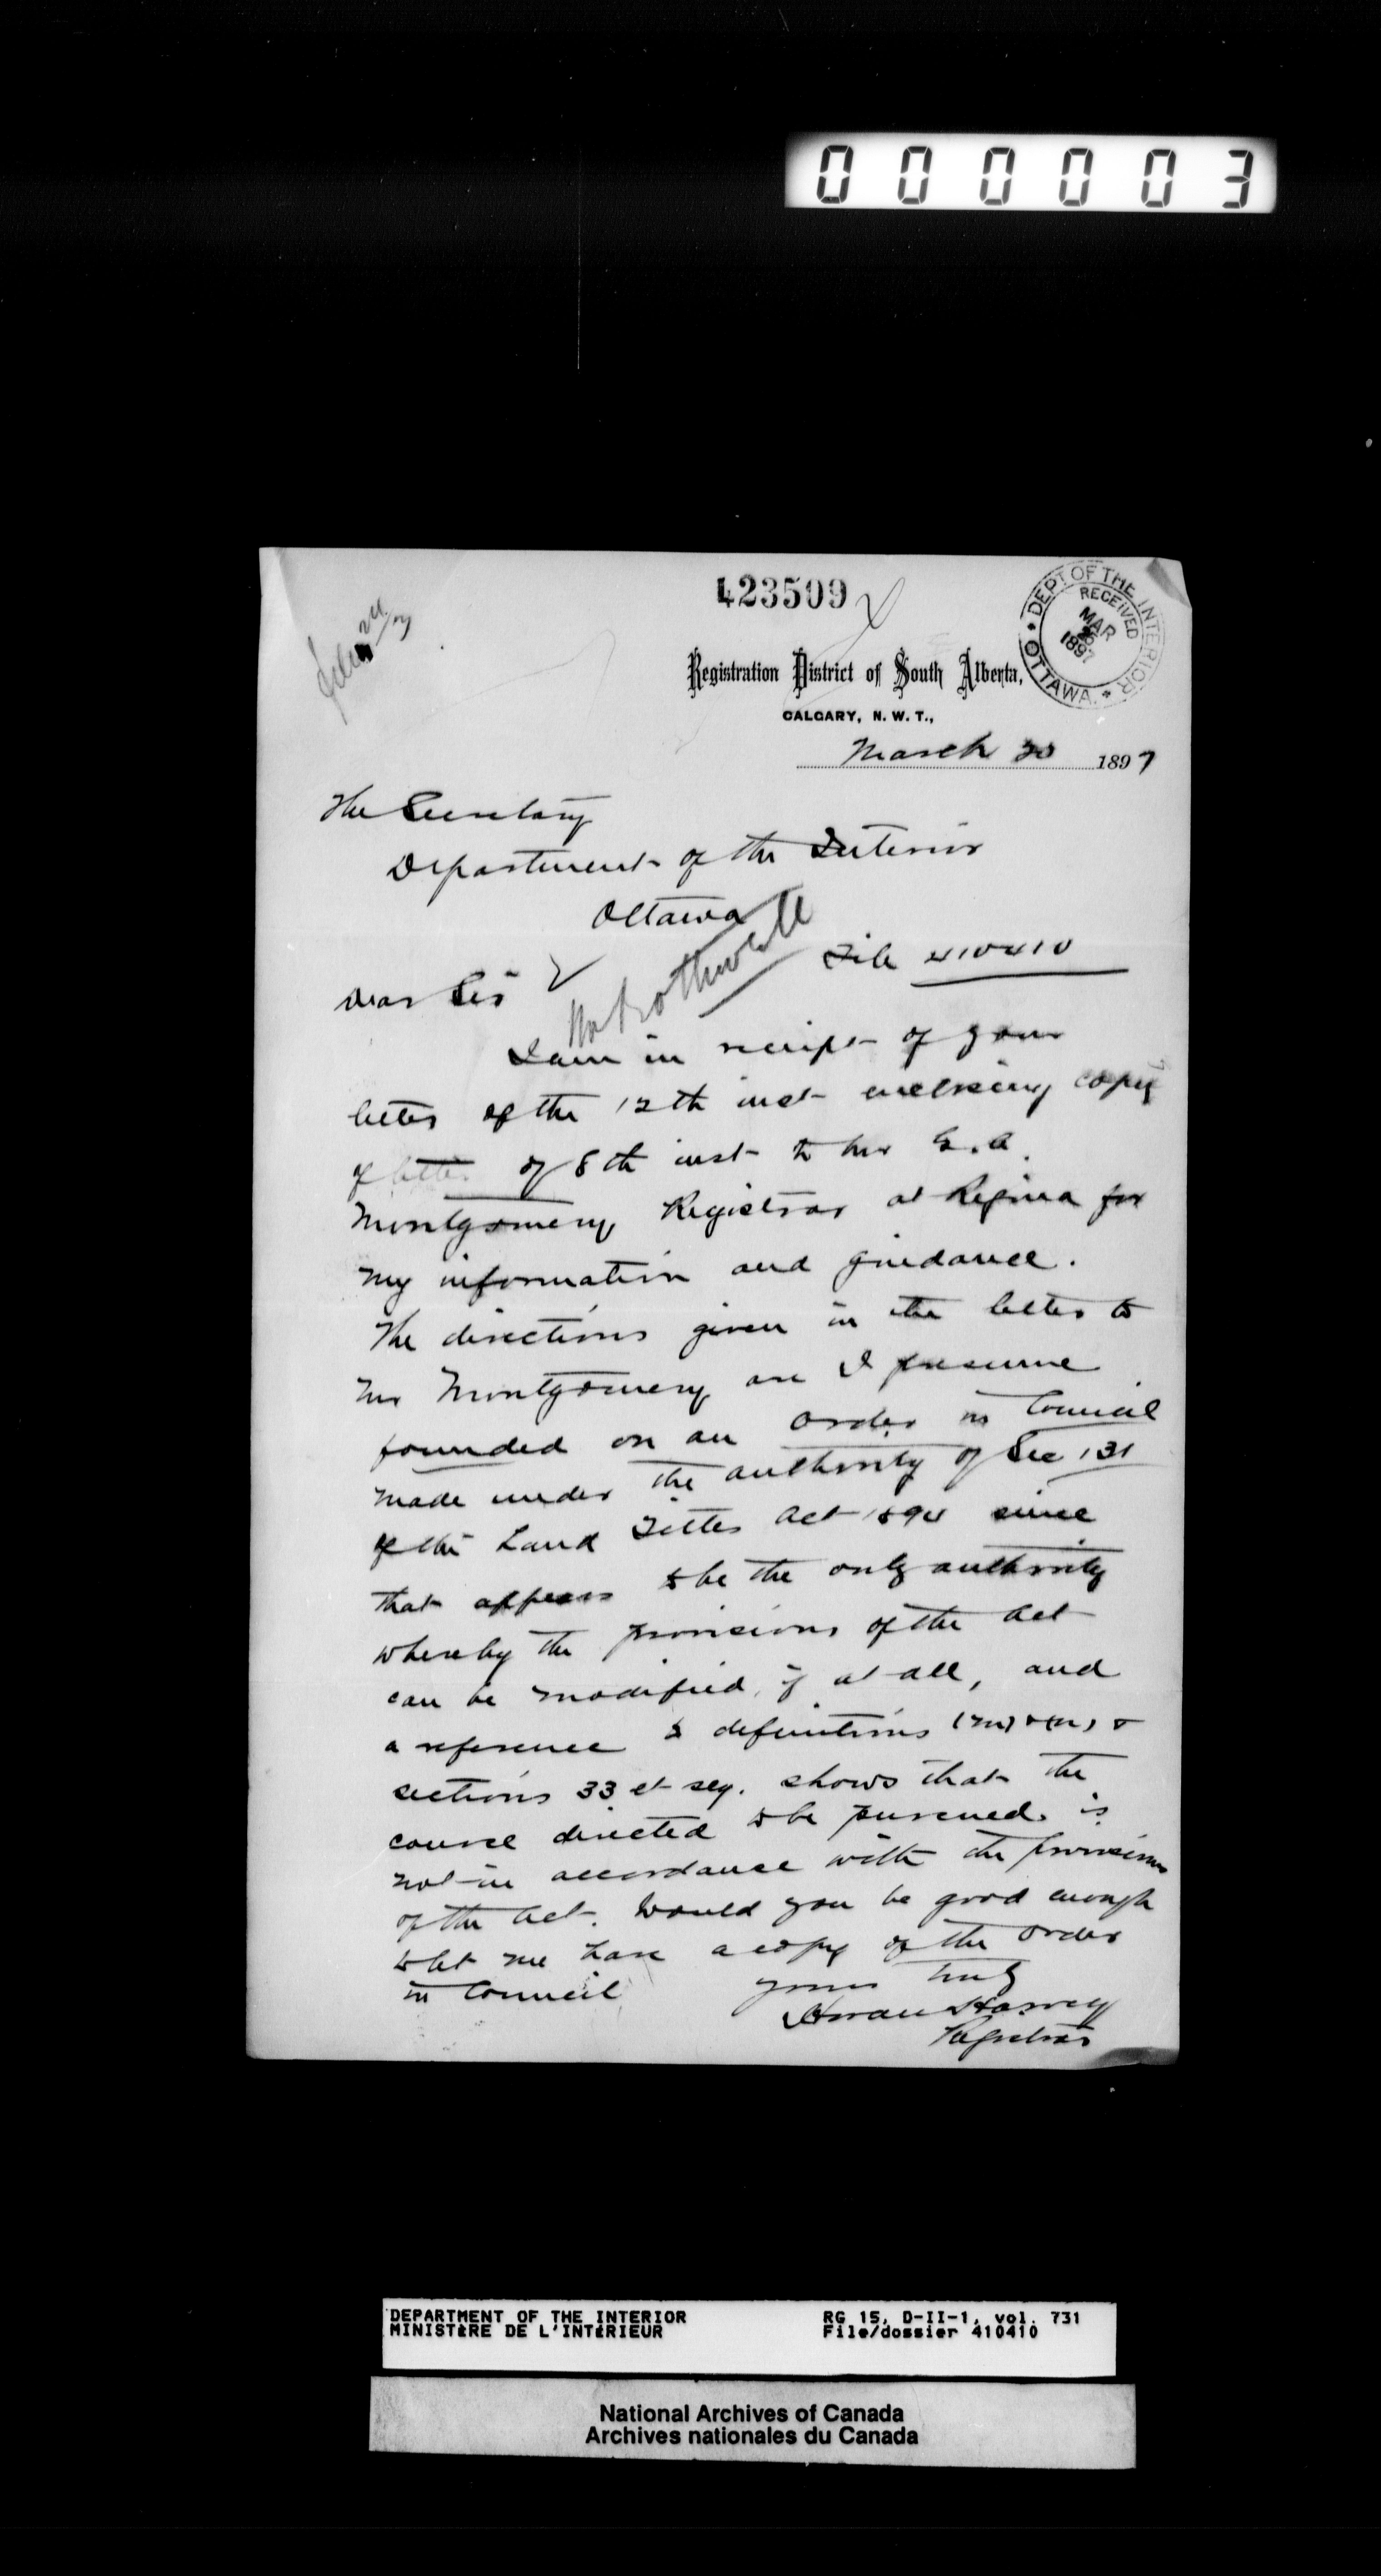 000003
423509
DEPT. OF THE INTERIOR
RECEIVED
MAR
1897
OTTAWA
Registration District of South Alberta,
CALGARY, N. W. T.,
March 20 1897
The Secretary
Department of the Interior
Ottawa
File 410410
Dear Sir
I am in receipt of your
letter of the 12th inst enclosing copy
of letter of 8th inst to Mr
Montgomery Registrar at Regina for
my information and guidance.
The directions given in the letter to
Mr Montgomery are I presume
founded on an order in Council
made under the authority of Sec 131
of the Land Titles Act 1894 since
that appears to be the only authority
whereby the provisions of the Act
can be modified, if at all, and
a reference to definitions (m) & (n) &
sections 33 et seq. shows that the
course directed to be pursued is
not in accordance with the provisions
of the Act. Would you be good enough
to let me have a copy of the order
in Council
yours truly
Horace Harvey
Registrar
DEPARTMENT OF THE INTERIOR RG 15, D-II-1, vol. 731
MINISTÈRE DE L'INTÉRIEUR File/dossier 410410
National Archives of Canada
Archives nationales du Canada